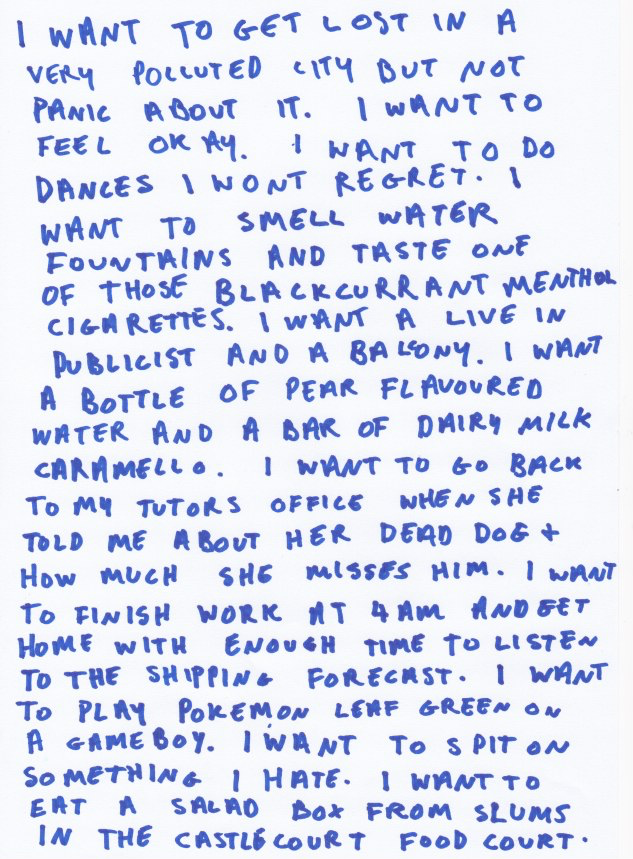 I WANT TO GET LOST IN A
VERY POLLUTED CITY BUT NOT
PANIC ABOUT IT. I WANT TO
FEEL OKAY. I WANT TO DO
DANCES I WONT REGRET. I
WANT TO SMELL WATER
FOUNTAINS AND TASTE ONE
OF THOSE BLACKCURRANT MENTHOL
CIGARETTES. I WANT A LIVE IN
PUBLICIST AND A BALCONY. I WANT
A BOTTLE OF PEAR FLAVOURED
WATER AND A BAR OF DAIRY MILK
CARAMELLO. I WANT TO GO BACK
TO MY TUTORS OFFICE WHEN SHE
TOLD ME ABOUT HER DEAD DOG +
HOW MUCH SHE MISSES HIM. I WANT
TO FINISH WORK AT 4AM AND GET
HOME WITH ENOUGH TIME TO LISTEN
TO THE SHIPPING FORECAST. I WANT
TO PLAY POKEMON LEAF GREEN ON
A GAMEBOY. I WANT TO SPIT ON
SOMETHING I HATE. I WANT TO
EAT A SALAD BOX FROM SLUMS
IN THE CASTLECOURT FOOD COURT.